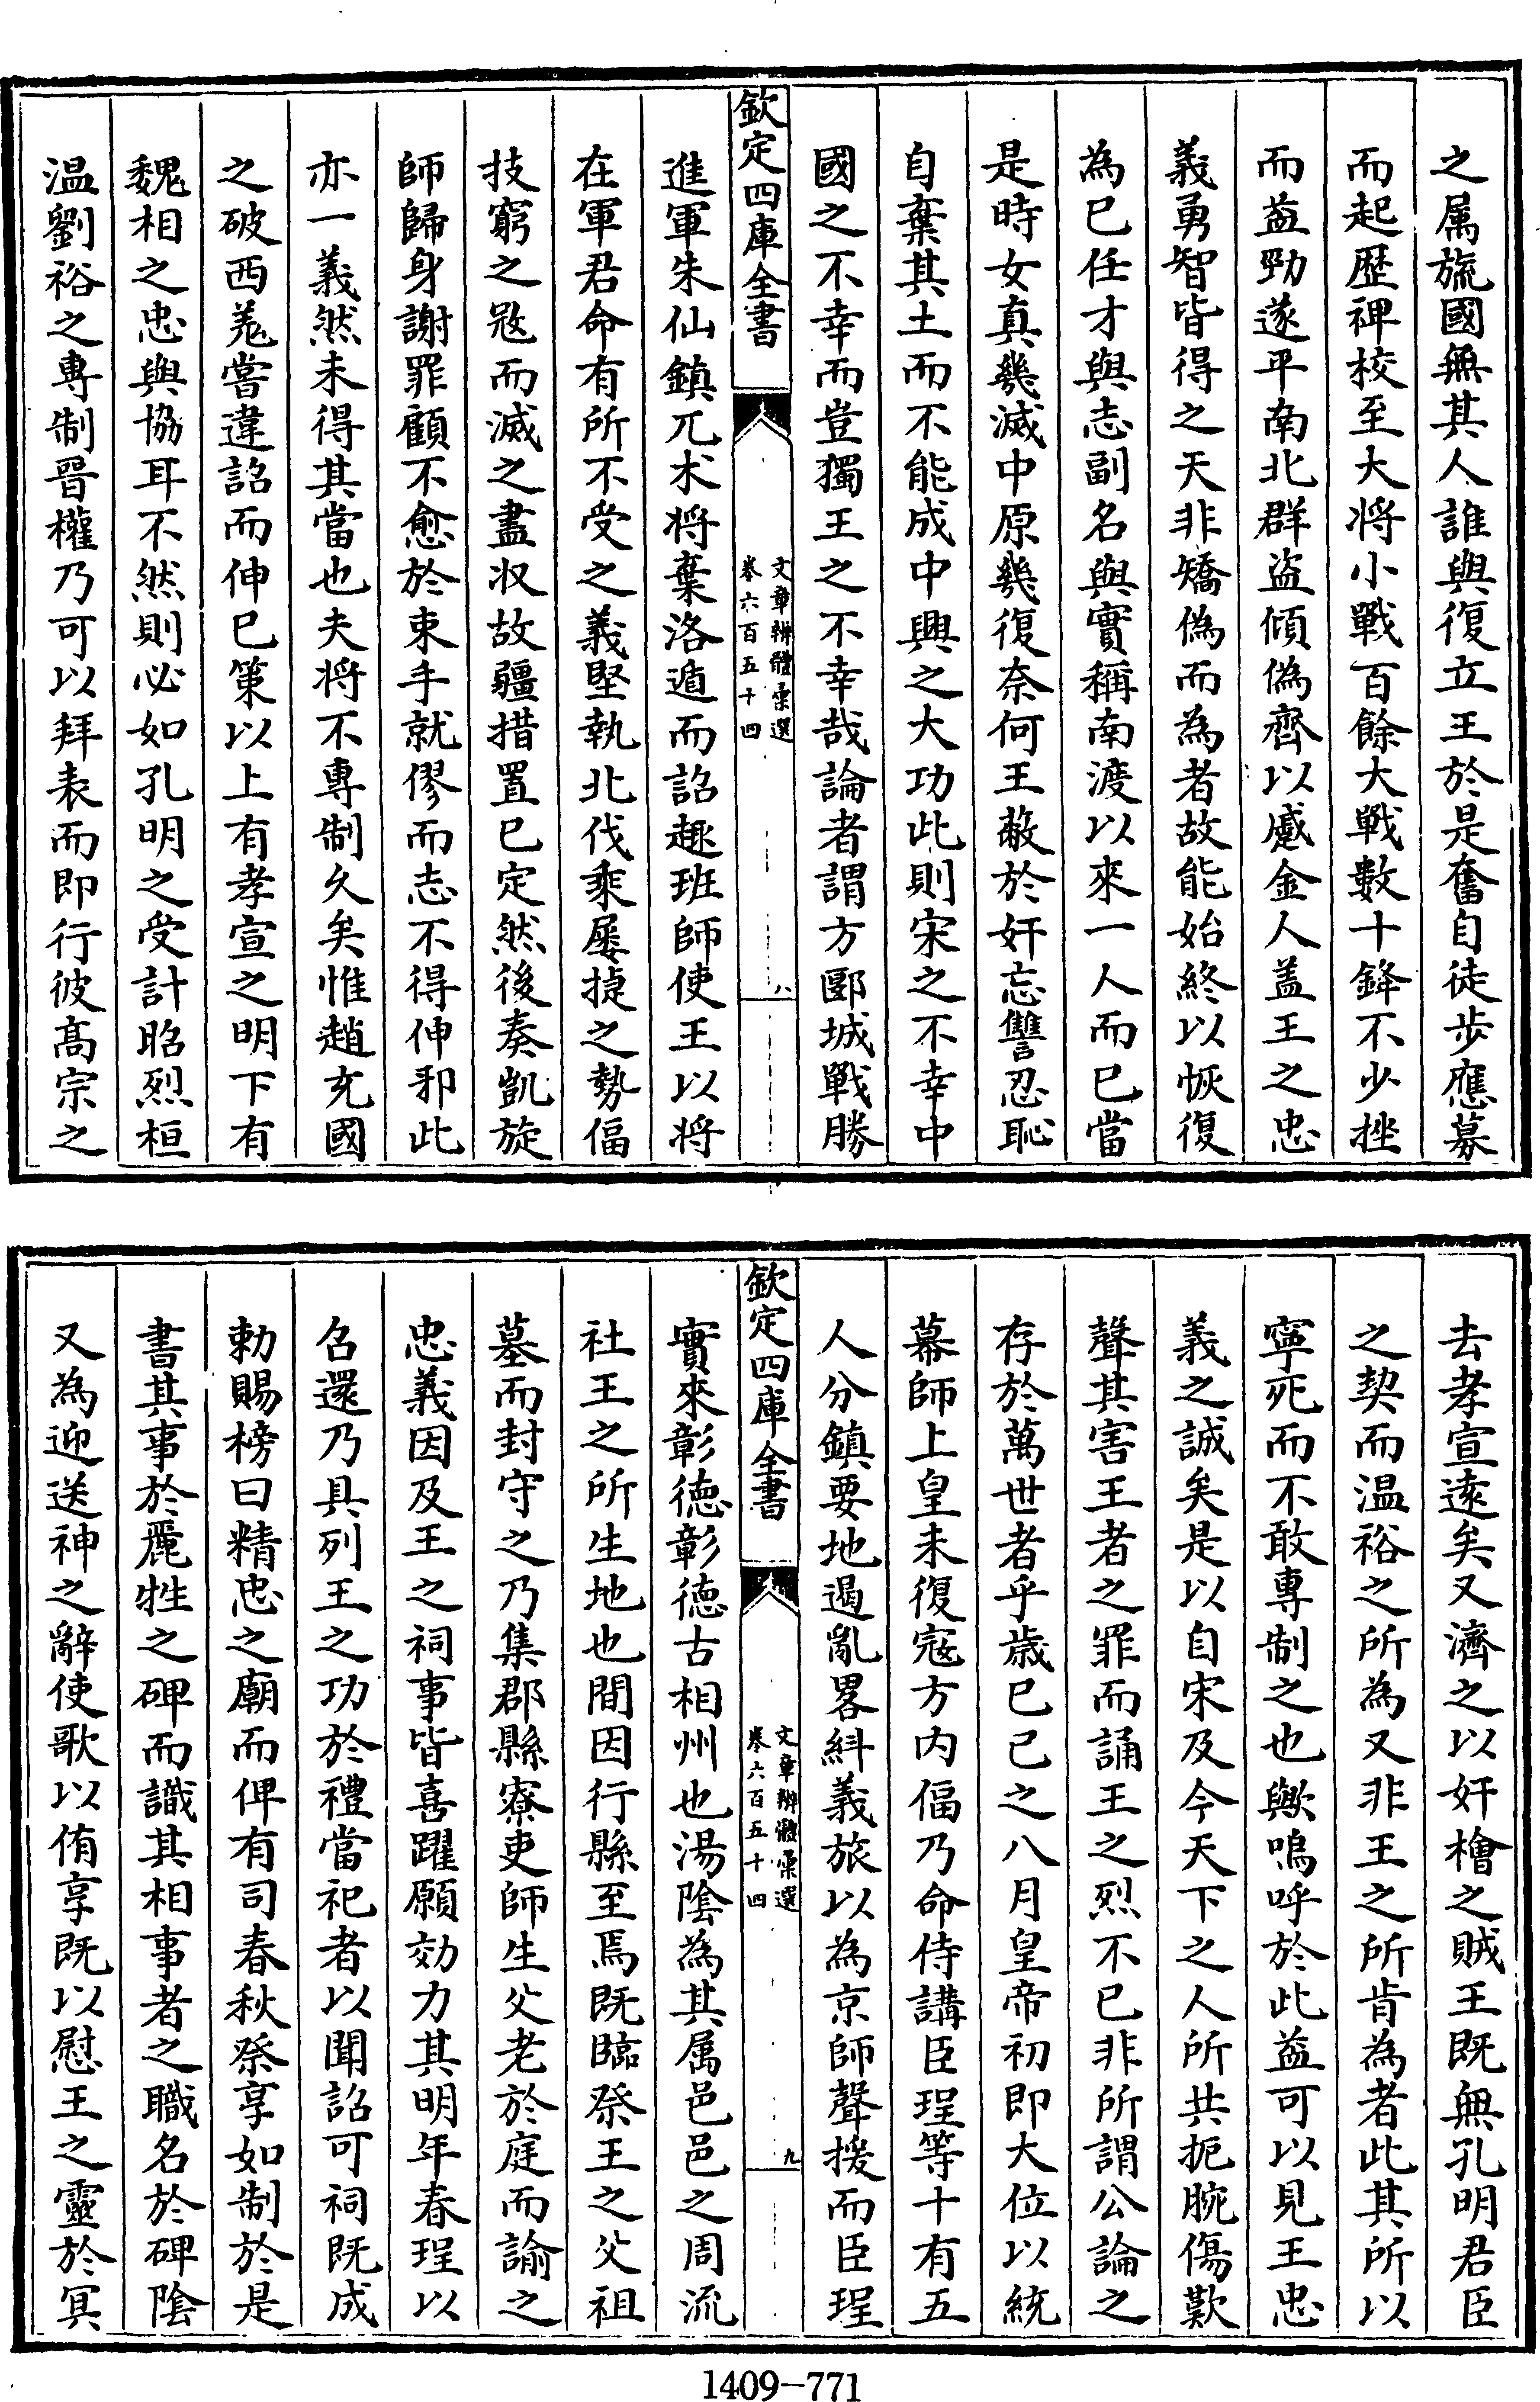 之属旒國無其人誰與復立王於是奮自徒步應募
而起歴裨校至大将小戰百餘大戰數十鋒不少挫
而益勁遂平南北群盜傾偽齊以蹙金人盖王之忠
義勇智皆得之天非矯偽而為者故能始終以恢復
為已任才與志副名與實稱南渡以來一人而已當
是時女真幾滅中原幾復奈何王蔽於奸忘讐忍恥
自棄其土而不能成中興之大功此則宋之不幸中
國之不幸而豈獨王之不幸哉論者謂方郾城戰勝
欽定四庫全書
文章辨體彙選
卷六百五十四
八
進軍朱仙鎮兀术将棄洛遁而詔趣班師使王以将
在軍君命有所不受之義堅執北伐乘屢捷之勢偪
技窮之㓂而滅之盡収故疆措置已定然後奏凱旋
師歸身謝罪顧不愈於束手就僇而志不得伸邪此
亦一義然未得其當也夫将不專制久矣惟趙充國
之破西羗嘗違詔而伸已策以上有孝宣之明下有
魏相之忠與協耳不然則必如孔明之受計昭烈桓
温劉裕之專制晉權乃可以拜表而即行彼髙宗之
去孝宣逺矣又濟之以奸檜之賊王既無孔明君臣
之契而温裕之所為又非王之所肯為者此其所以
寧死而不敢專制之也歟嗚呼於此益可以見王忠
義之誠矣是以自宋及今天下之人所共扼腕傷歎
聲其害王者之罪而誦王之烈不已非所謂公論之
存於萬世者乎歳已已之八月皇帝初即大位以統
幕師上皇未復寇方内偪乃命侍講臣珵等十有五
人分鎮要地遏亂畧糾義旅以為京師聲援而臣珵
欽定四庫全書
文章辨體彙選
卷六百五十四
九
實來彰徳彰徳古相州也湯陰為其属邑邑之周流
社王之所生地也間因行縣至焉既臨祭王之父祖
墓而封守之乃集郡縣寮吏師生父老於庭而諭之
忠義因及王之祠事皆喜躍願効力其明年春珵以
名還乃具列王之功於禮當祀者以聞詔可祠既成
勅賜榜曰精忠之廟而俾有司春秋祭享如制於是
書其事於麗牲之碑而識其相事者之職名於碑陰
又為迎送神之辭使歌以侑享既以慰王之靈於冥
1409-771